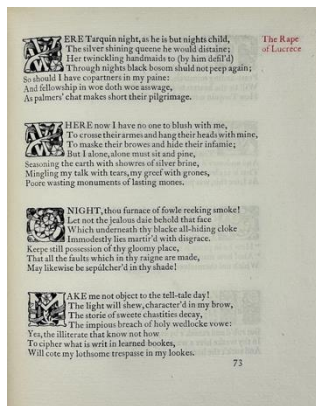 WERE Tarquin night, as he is but nights child,
The silver shining queene he would distaine;
Her twinckling handmaids to (by him defil'd)
Through nights black bosom shuld not peep again;
So should I have copartners in my paine:
And fellowship in woe doth woe asswage,
As palmers' chat makes short their pilgrimage.
The Rape
of Lucrece
WHERE now I have no one to blush with me,
To crosse their armes and hang their heads with mine,
To maske their browes and hide their infamie;
But I alone, alone must sit and pine,
Seasoning the earth with showres of silver brine,
Mingling my talk with tears, my greef with grones,
Poore wasting monuments of lasting mones.
O NIGHT, thou furnace of fowle reeking smoke!
Let not the jealous daie behold that face
Which underneath thy blacke all-hiding cloke
Immodestly lies martir'd with disgrace.
Keepe still possession of thy gloomy place,
That all the faults which in thy raigne are made,
May likewise be sepúlcher'd in thy shade!
MAKE me not object to the tell-tale day!
The light will shew, character'd in my brow,
The storie of sweete chastities decay,
The impious breach of holy wedlocke vowe:
Yea, the illiterate that know not how
To cipher what is writ in learned bookes,
Will cote my lothsome trespasse in my lookes.
73